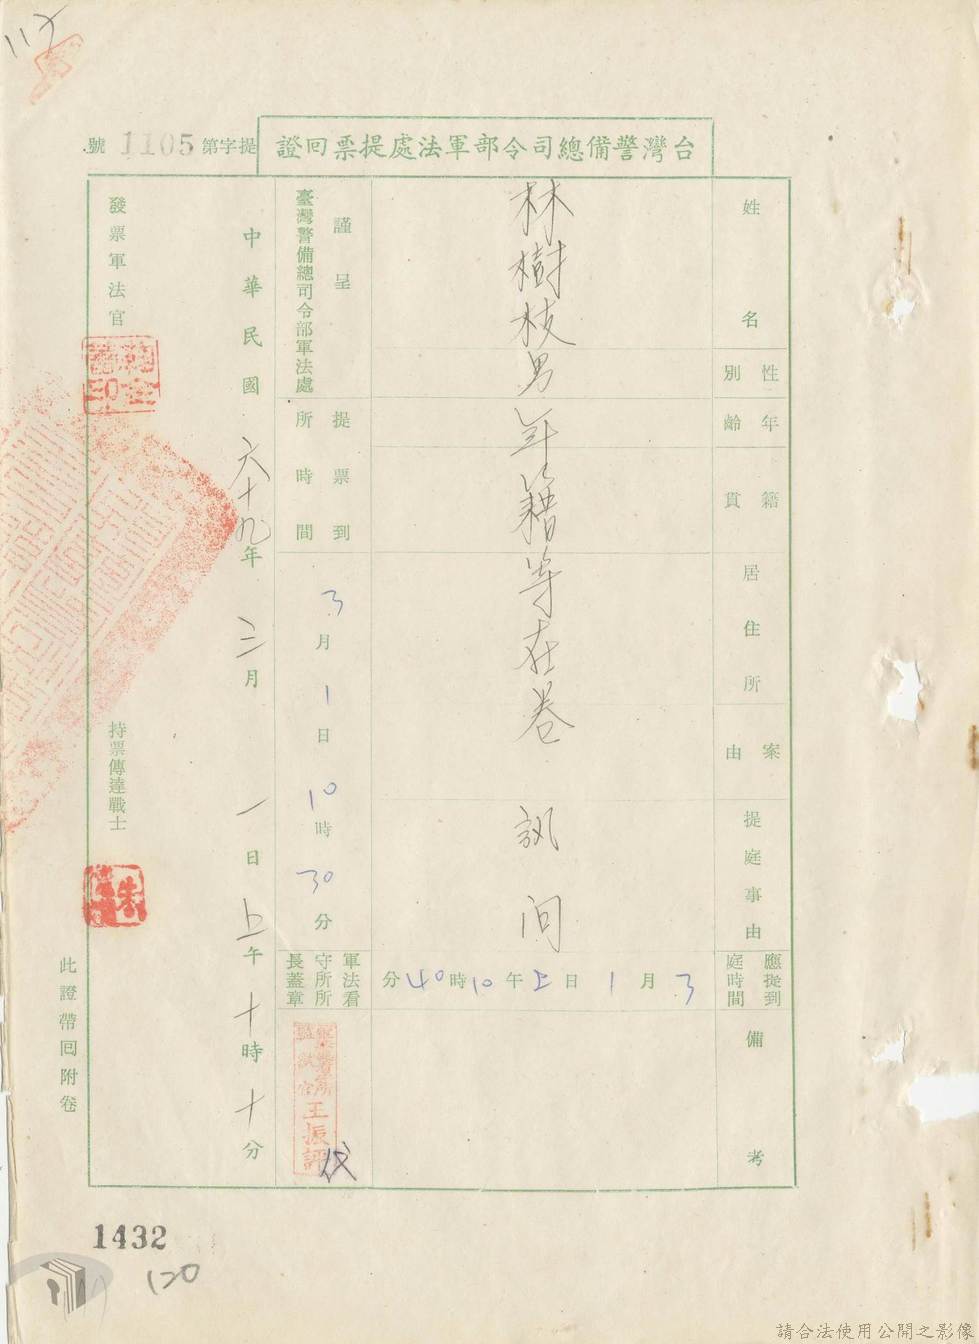 台灣警備總司令部軍法處提票回證
提字第1105號
姓名
林樹枝
性別
男
年齡
籍貫
年籍等在卷
居住所
案由
提庭事由
訊问
應提到庭時間
3月1日上午10時40分
備考
謹呈
臺灣警備總司令部軍法處
提票到所時間
3月1日10時30分
軍法看守所所長蓋章
王振評
代
中華民國六十九年三月一日上午十時十分
發票軍法官
持票傳達戰士
朱
此證帶回附卷
1432
120
請合法使用公開之影像